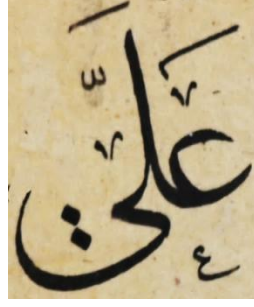 عَليَّ